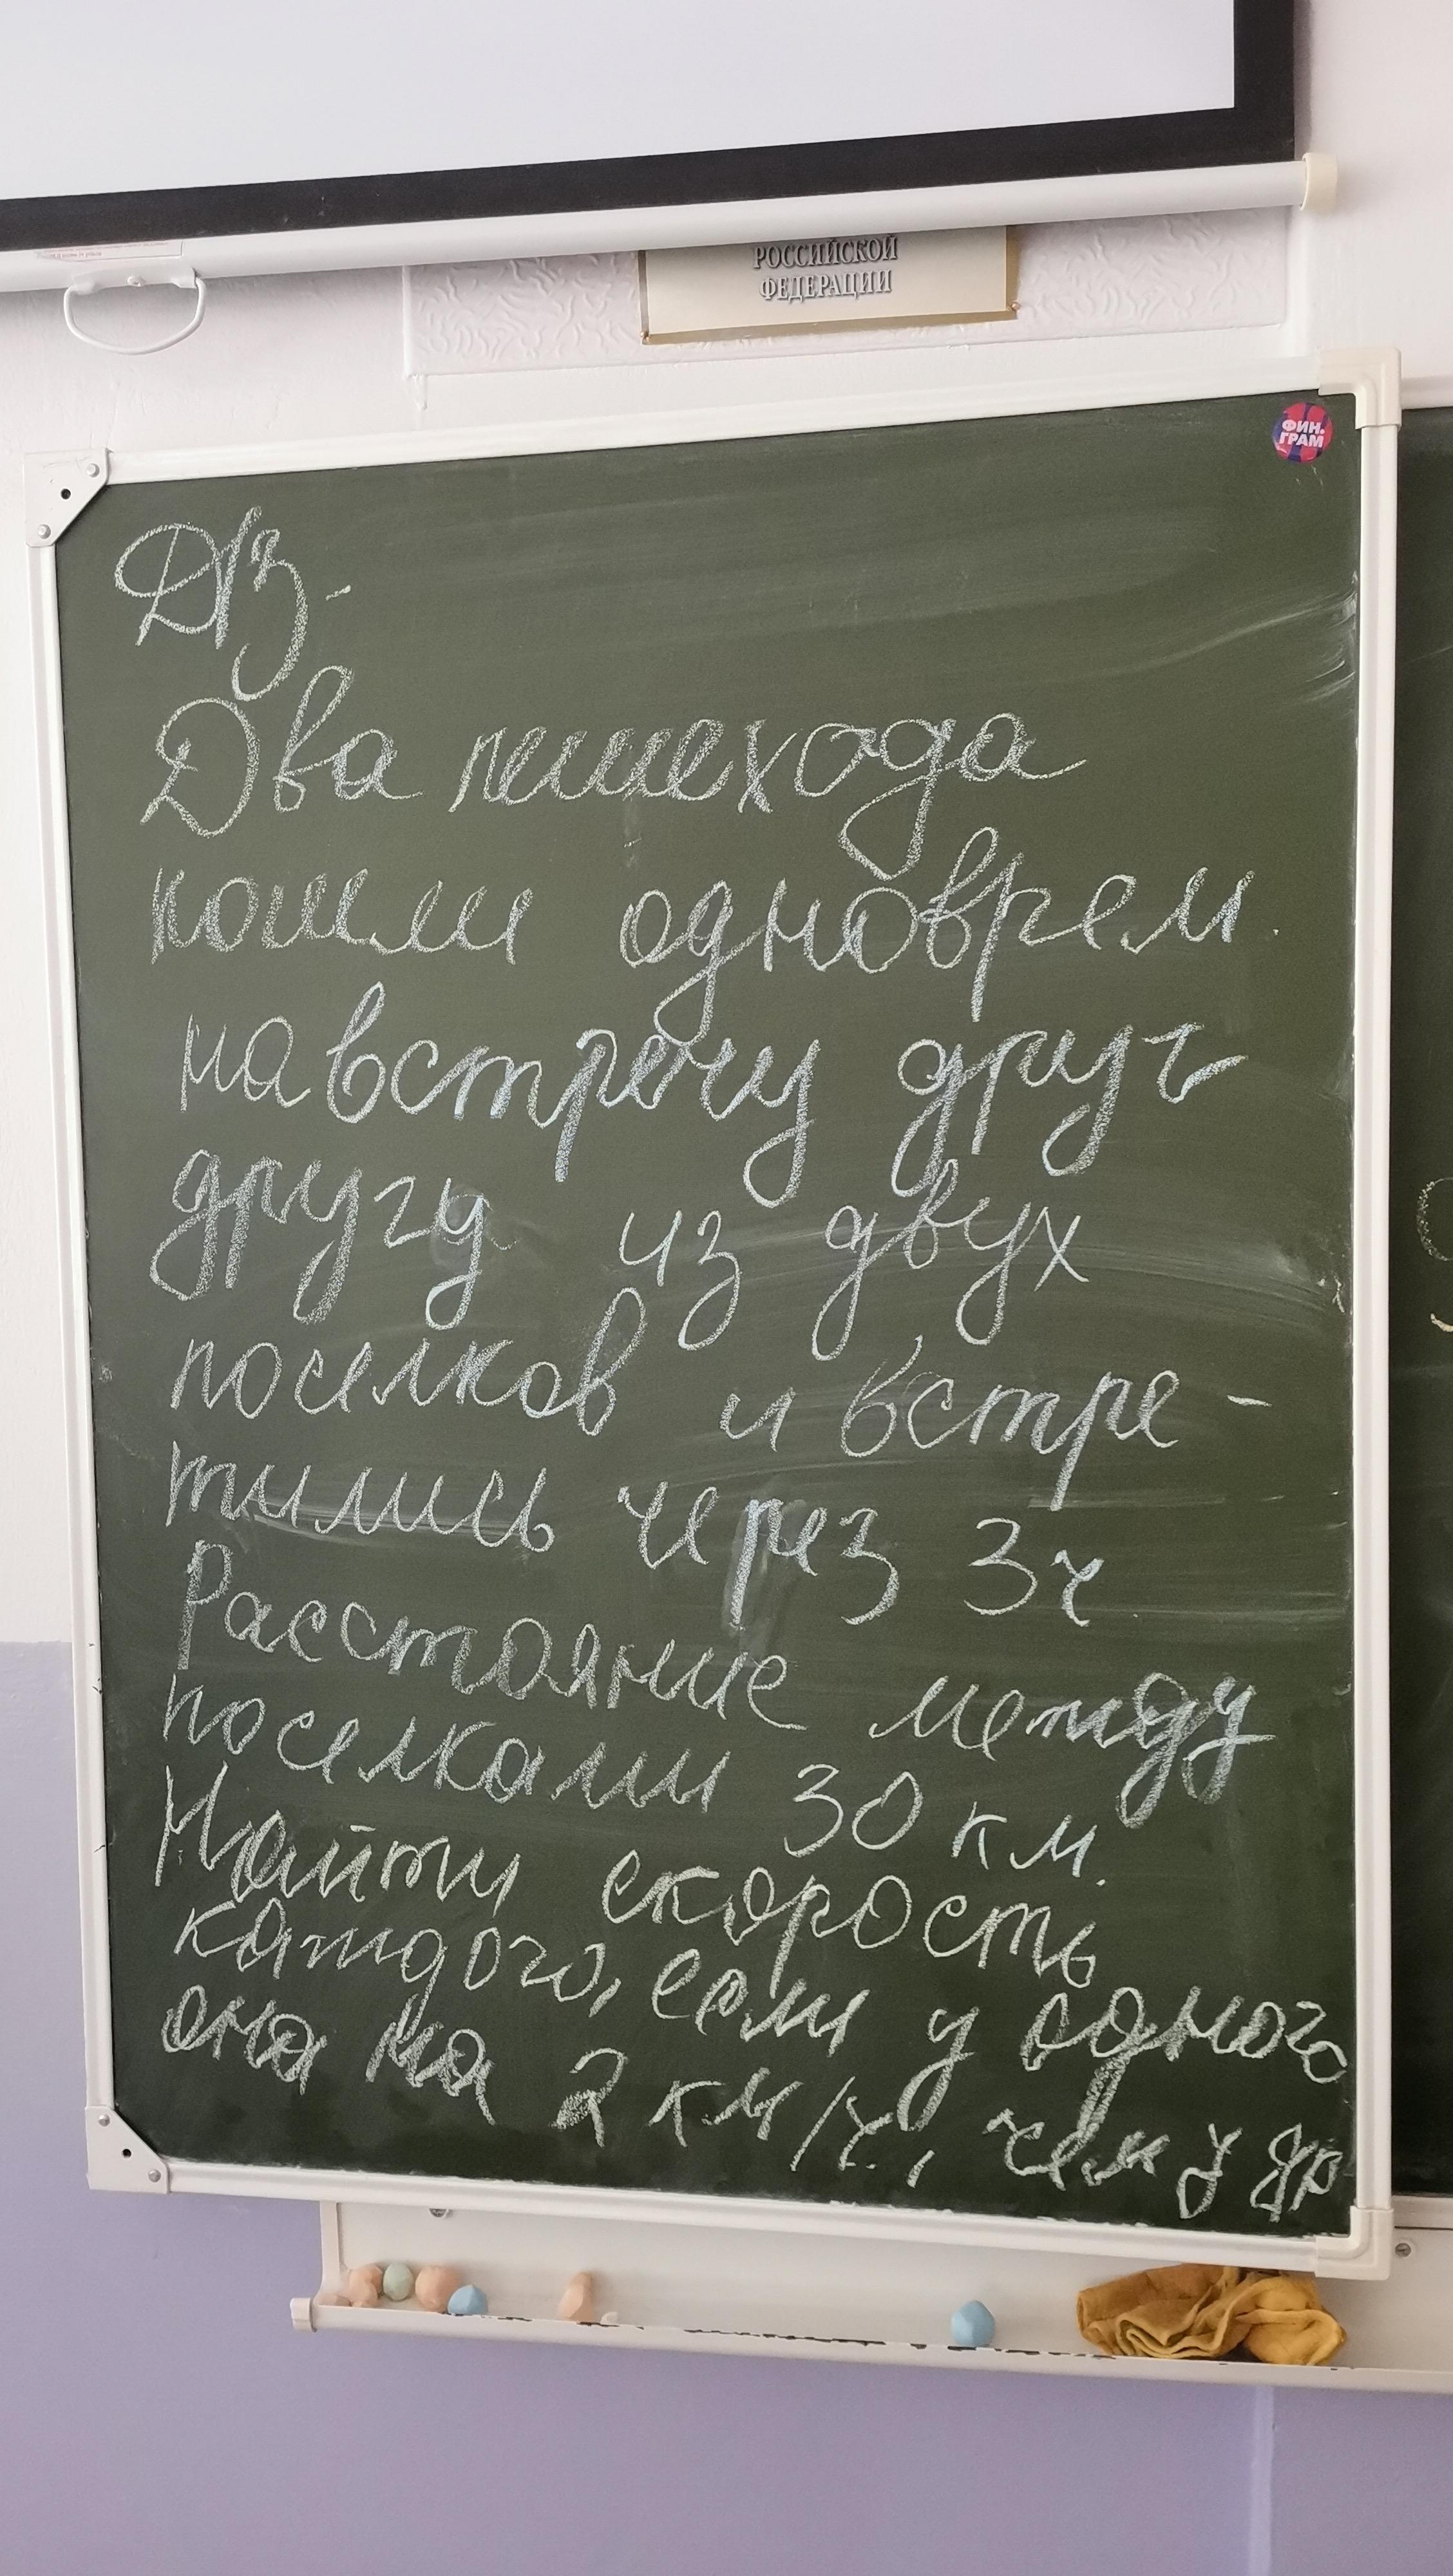 РОССИЙСКОЙ
ФЕДЕРАЦИИ
ФИН.
ГРАМ
Д/з.
Два пешехода
пошли одноврем.
навстречу друг
другу из двух
поселков и встре-
тились через 3ч
Расстояние между
поселками 30 км.
Найти скорость
каждого, если у одного
она на 2 км/ч., чем у др